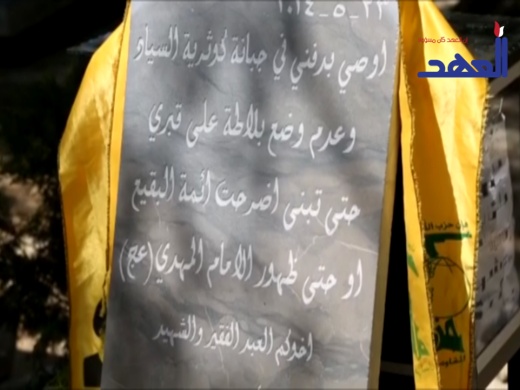 ٢٣_٥_٢٠١٤
اوصي بدفني في جبانة كوثرية السياد
وعدم وضع بلاطة على قبري
حتى تبنى اضرحت ائمة البقيع
او حتى ظهور الامام المهدي (عج)
اخوكم العبد الفقير والشهيد
العهد
فإن حزب